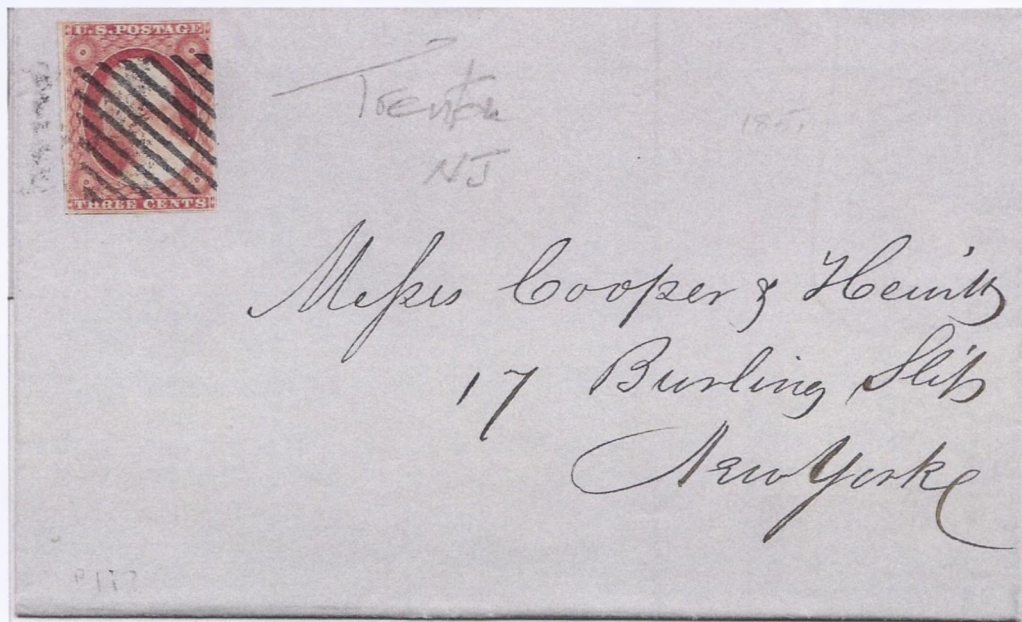 U.S. POSTAGE
THREE CENTS
Trenton
NJ
Messrs Cooper & Hewitt
17 Burling Slip
New York